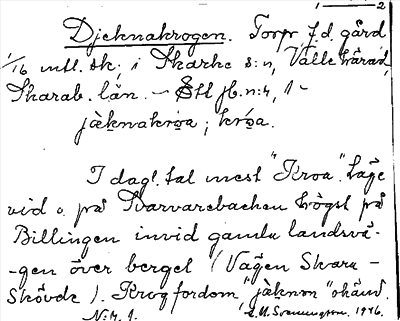 Djeknakrogen. Torp, f.d. gård
1/16 mtl. sk; i Skarke s:n, Valle härad,
Skarab. län. — Stl jb. n:r, 1 —
jäknakroa; kroa.
I dagl. tal mest "Kroa". Läge
vid o. på Svarvarebacken högst på
Billingen invid gamla landsvä-
-gen över berget (Vägen Skara -
Skövde). Krog fordom, "jäknon" okänd.
N:r 1. 1946.